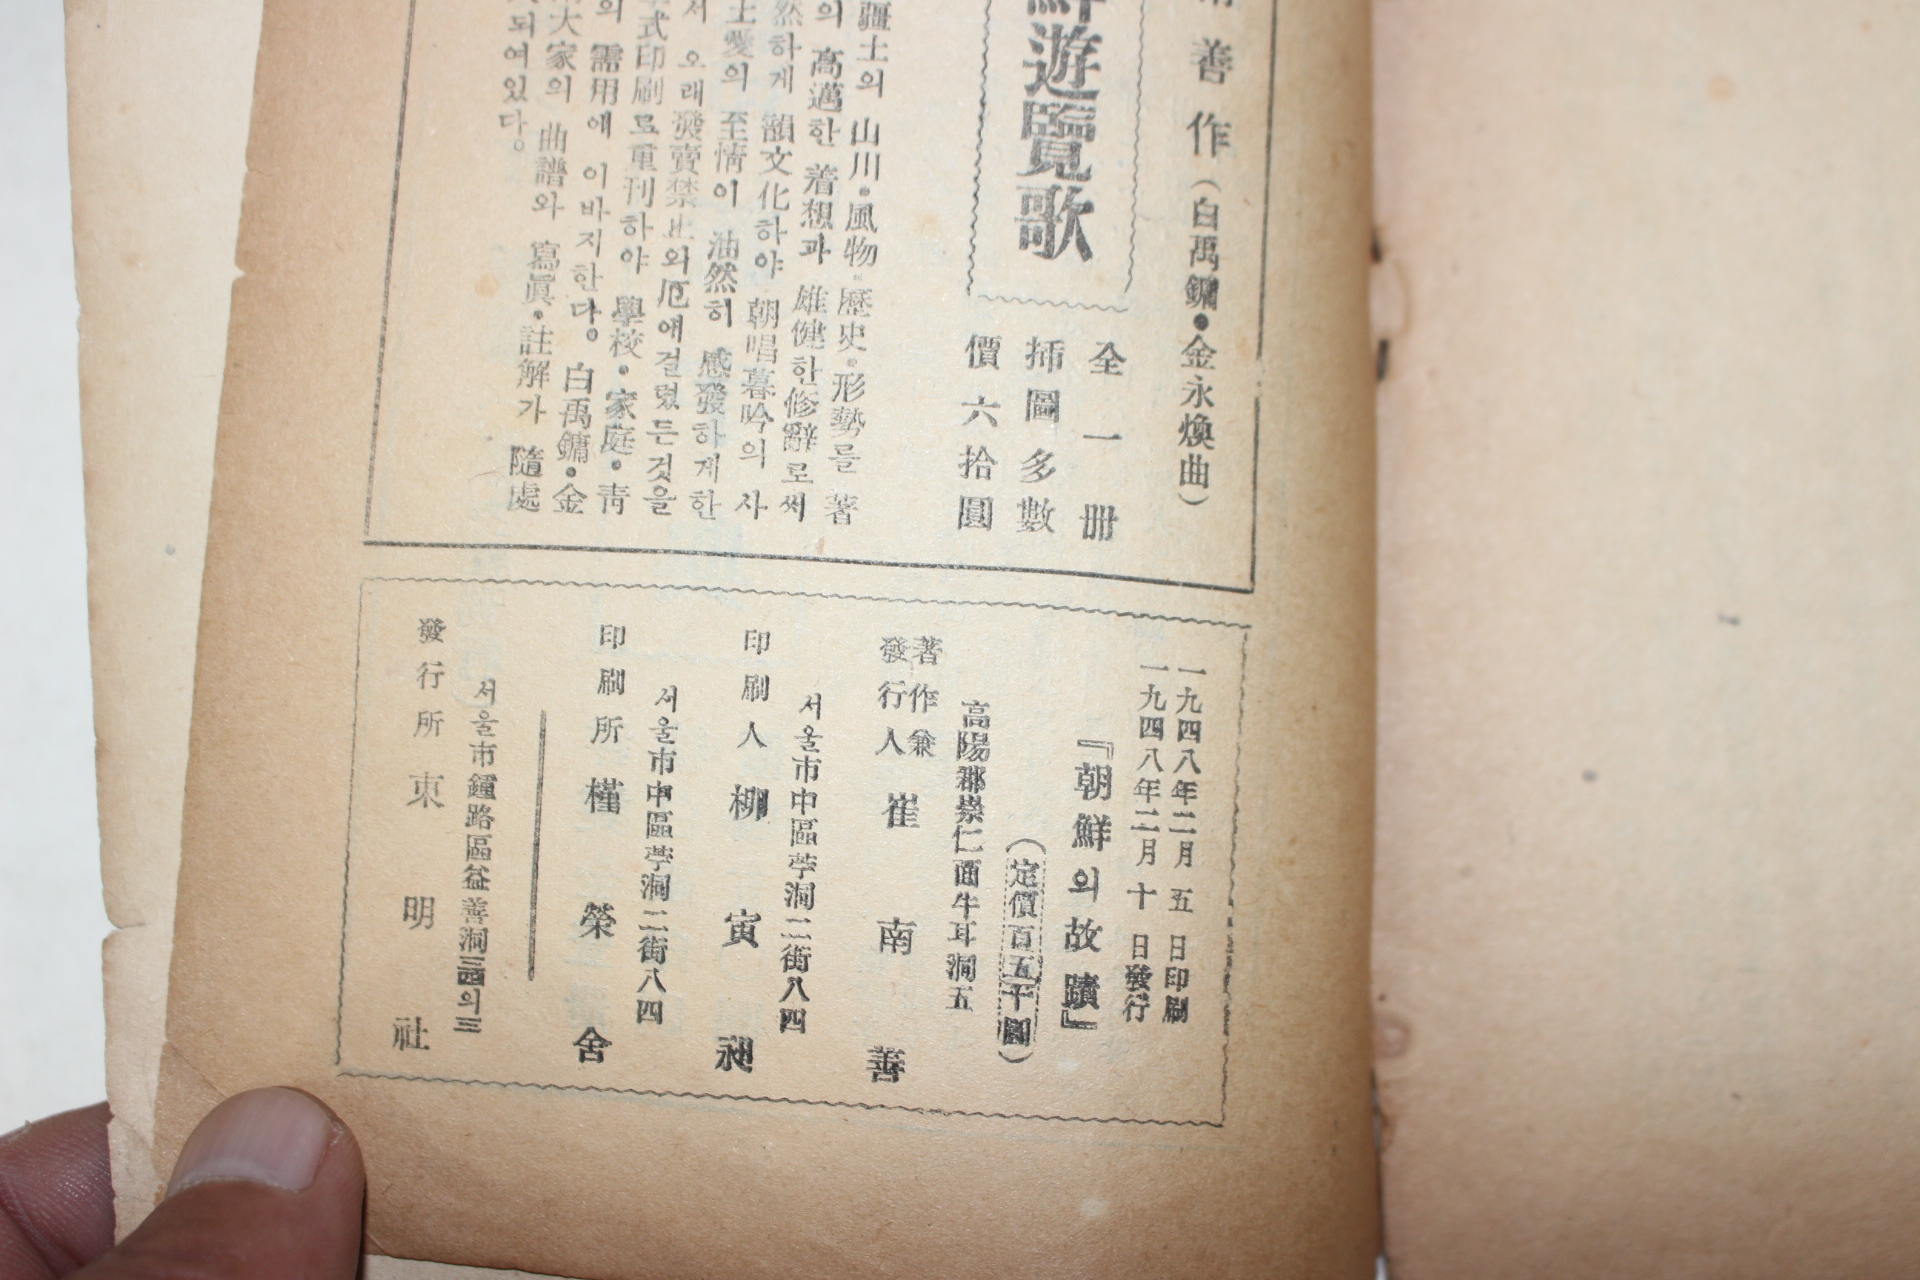 善作(白禹鏞•金永煥曲)
遊覽歌
全一冊
揷圖多數
價六拾圓
疆土의 山川•風物•歷史•形勢를 著
의 高邁한 着想과 雄健한修辭로써
然하게 韻文化하야 朝唱暮吟의 사
土愛의 至情이 油然히 感發하게한
서 오래發賣禁止와厄에걸렸든것을
式印刷로重刊하야 學校•家庭•靑
의 需用에 이바지한다。 白禹鏞•金
大家의 曲譜와 寫眞•註解가 隨處
되여있다。
一九四八年二月 五 日印刷
一九四八年二月 十 日發行
『朝鮮의故蹟』
(定價百五十圓)
高陽郡崇仁面牛耳洞五
著作兼
發行人 崔南善
서울市中區苧洞二街八四
印刷人 柳寅昶
서울市中區苧洞二街八四
印刷所 槿榮舍
서울市鍾路區益善洞三四의三
發行所 東明社